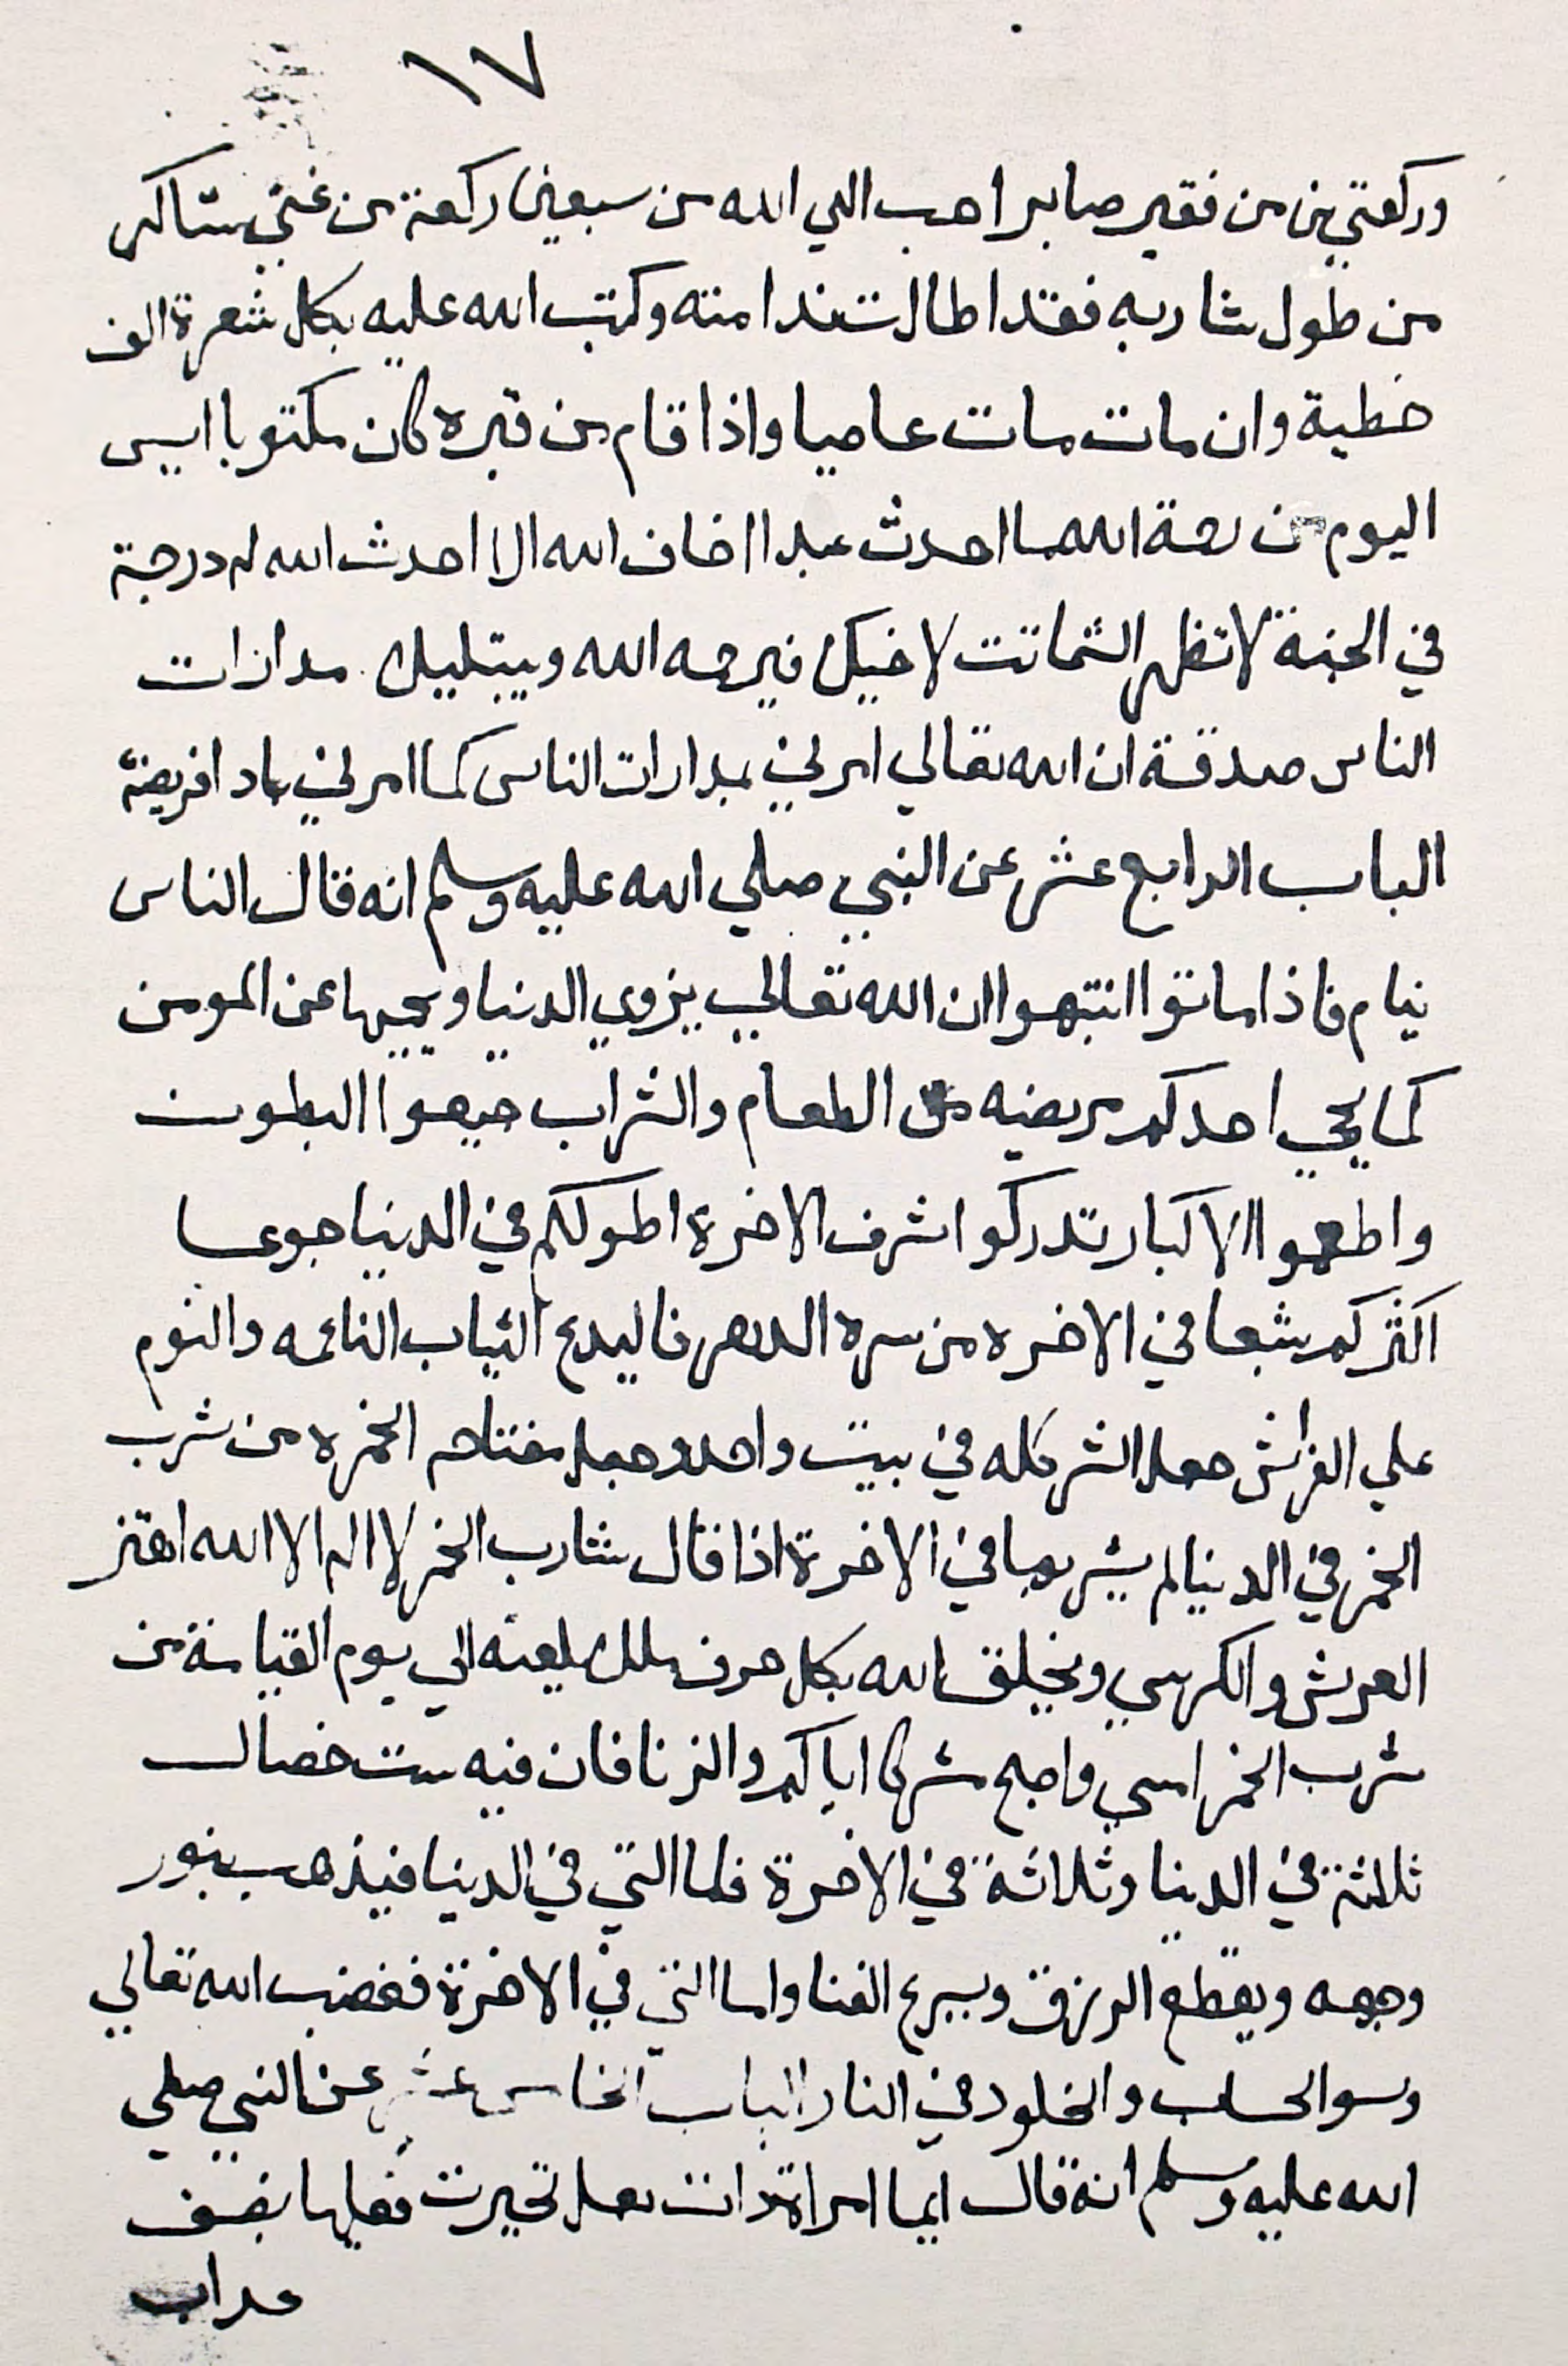 ١٧
وركعتين من فقير صابر احب الي الله من سبعين ركعة من غني شاكر
من طول شاربه فقد اطالت ندامته وكتب الله عليه بكل شعرة الف
خطية وان مات مات عاصيا واذا قام من قبره كان مكتوبا ايس
اليوم من رحمة الله ما احدث عبدا اخاف الله الا احدث الله له درجة
في الجنة لا تظهر الشماتت لاخيك فيرحمه الله ويبتليك مدارات
الناس صدقة ان الله تعالي امرني بمدارات الناس كما امرني باد افريضة
الباب الرابع عشر عن النبي صلي الله عليه وسلم انه قال الناس
نيام فاذا ماتوا انتبهوا ان الله تعالي يزوي الدنيا ويحميها عن المومن
كما يحمي احدكم مريضه من الطعام والشراب جيعوا البطون
واطعموا الاكبار تدركوا شرف الاخرة اطولكم في الدنيا جوعا
اكثركم شبعا في الاخره من سره الدهر فاليدع الثياب الناعمه والنوم
علي الفراش جعل الشر كله في بيت واحد وجعل مفتاحه الخمره من شرب
الخمر في الدنيا لم يشربها في الاخرة اذا قال شارب الخمر لا اله الا الله اهتز
العرش والكرسي ويخلق الله بكل حرف ملك يلعنه الي يوم القيامة من
شرب الخمر امسي واصبح مشركا اياكم والزنا فان فيه ست خصال
ثلاثة في الدنيا وثلاثة في الاخرة فاما التي في الدنيا فيذهب بنور
وجهه ويقطع الرزق ويسرع الفنا واما التي في الاخرة فغضب الله تعالي
وسو الحساب والخلود في النار الباب الخامس عشر عن النبي صلي
الله عليه وسلم انه قال ايما امراة ذات بعل تحيرت فعليها نصف
عداب